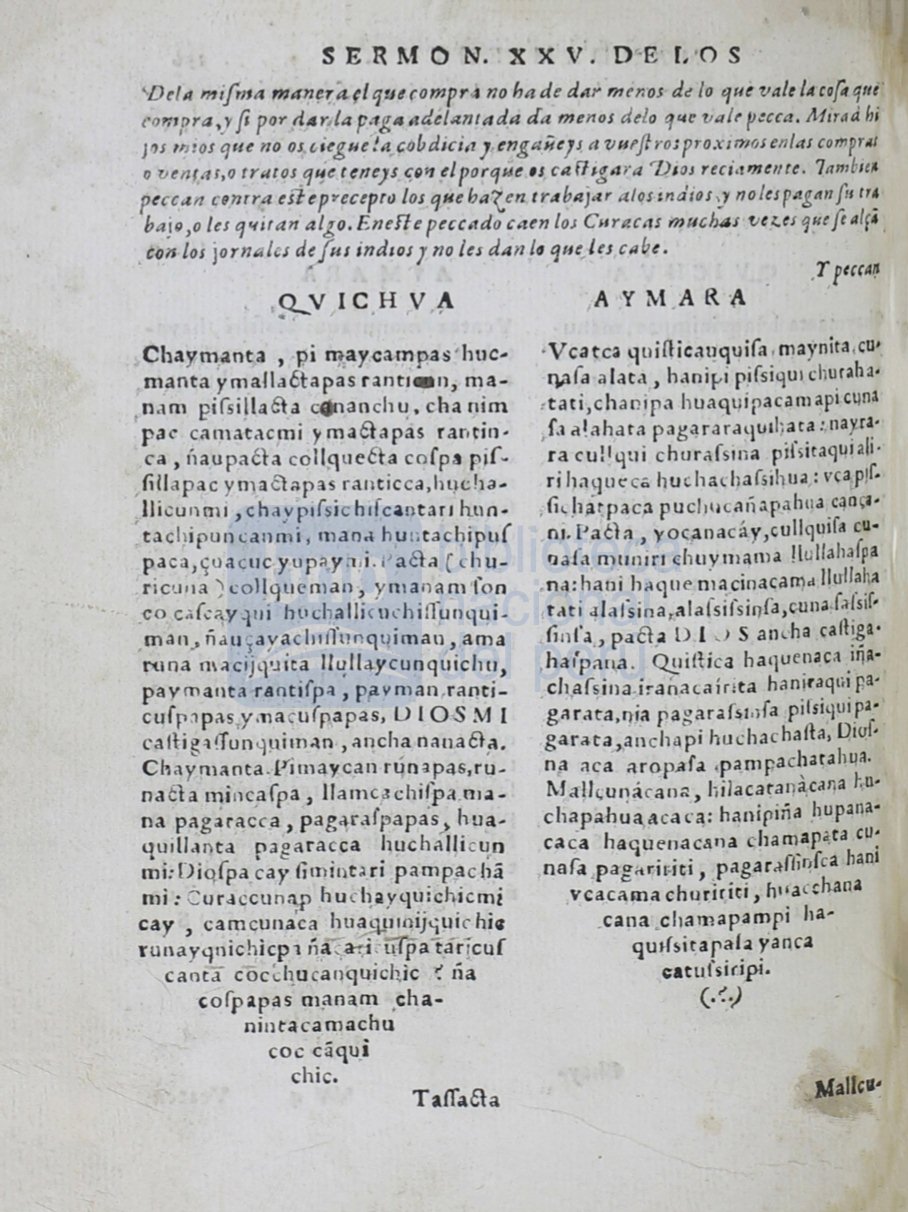 SERMON. XXV. DE LOS
Dela miſma manera el que compra no ha de dar menos de lo que vale la coſa que
compra, y ſi por dar la paga adelantada da menos delo que vale pecca. Mirad hi
jos mios que no os ciegue la cobdicia y engañeys a vueſtros proximos enlas compras
o ventas, o tratos que teneys con el porque os caſtigara Dios reciamente. Tambien
peccan contra eſte precepto los que hazen trabajar alos indios y no les pagan ſu tra
bajo, o les quitan algo. Eneſte peccado caen los Curacas muchas vezes que ſe alçã
con los jornales de ſus indios y no les dan lo que les cabe.
Y peccan
QVICHVA
Chaymanta, pi maycampas huc-
manta ymallactapas ranti n, ma-
nam piſsillacta c nanchu, cha nim
pac camatacmi ymactapas rantin-
ca, ñaupacta collquecta coſpa piſ-
ſillapac ymactapas ranticca, hucha-
llicunmi, chaypiſsichiſcantari hun-
tachipuncanmi, mana huntachipuſ
paca, çuacuc yupaymi. Pacta (chu-
ricuna) collqueman, ymanam ſon
co caſcayqui huchallicuchiſſunqui-
man, ñauçayachiſſunquiman, ama
runa macijquita llullaycunquichu,
paymanta rantiſpa, payman ranti-
cuſpapas ymacuſpapas, DIOS MI
caſtigaſſunquiman, ancha nanacta.
Chaymanta. Pimaycan runapas, ru-
nacta mincaſpa, llamcachiſpa ma-
na pagaracca, pagaraſpapas, hua-
quillanta pagaracca huchallicun
mi: Dioſpa cay ſimintari pampachã
mi: Curaccunap huchayquichicmi
cay, camcunaca huaquinijquichic
runayquichicpa ñacari uſpa taricuſ
canta cocchucanquichic? ña
coſpapas manam cha-
nintacamachu
coc cãqui
chic.
Taſſacta
AYMARA
Vcatca quiſticauquiſa maynita, cu-
naſa alata, hanipi piſsiqui churaha-
tati, chanipa huaquipacamapi cuna
ſa alahata pagararaquihata: nayra-
ra cullqui churaſsina piſsitaqui ali-
ri haqueca huchachaſsihua: vca piſ-
ſichatpaca puchucañapahua cança-
ni. Pacta, yocanacáy, cullquiſa cu-
naſa muniri chuymama llullahaſpa
na: hani haque macinacama llullaha
tati alaſsina, alaſsiſsinſa, cuna ſaſsiſ-
ſinſa, pacta DIOS ancha caſtiga-
haſpana. Quiſtica haquenaca iña-
chaſsina iranacaírita haniraqui pa-
garata, nia pagaraſsinſa piſsiqui pa-
garata, anchapi huchachaſta, Dioſ-
na aca aropaſa pampachatahua.
Mallcunácana, hilacatanàcana hu-
chapahua acaca: hanipiña hupana-
caca haquenacana chamapata cu-
naſa pagaririti, pagaraſſinſca hani
vcacama chuririti, huacchana
cana chamapampi ha-
quiſsitapaſa yanca
catuſsiripi.
(.?.)
Mallcu-